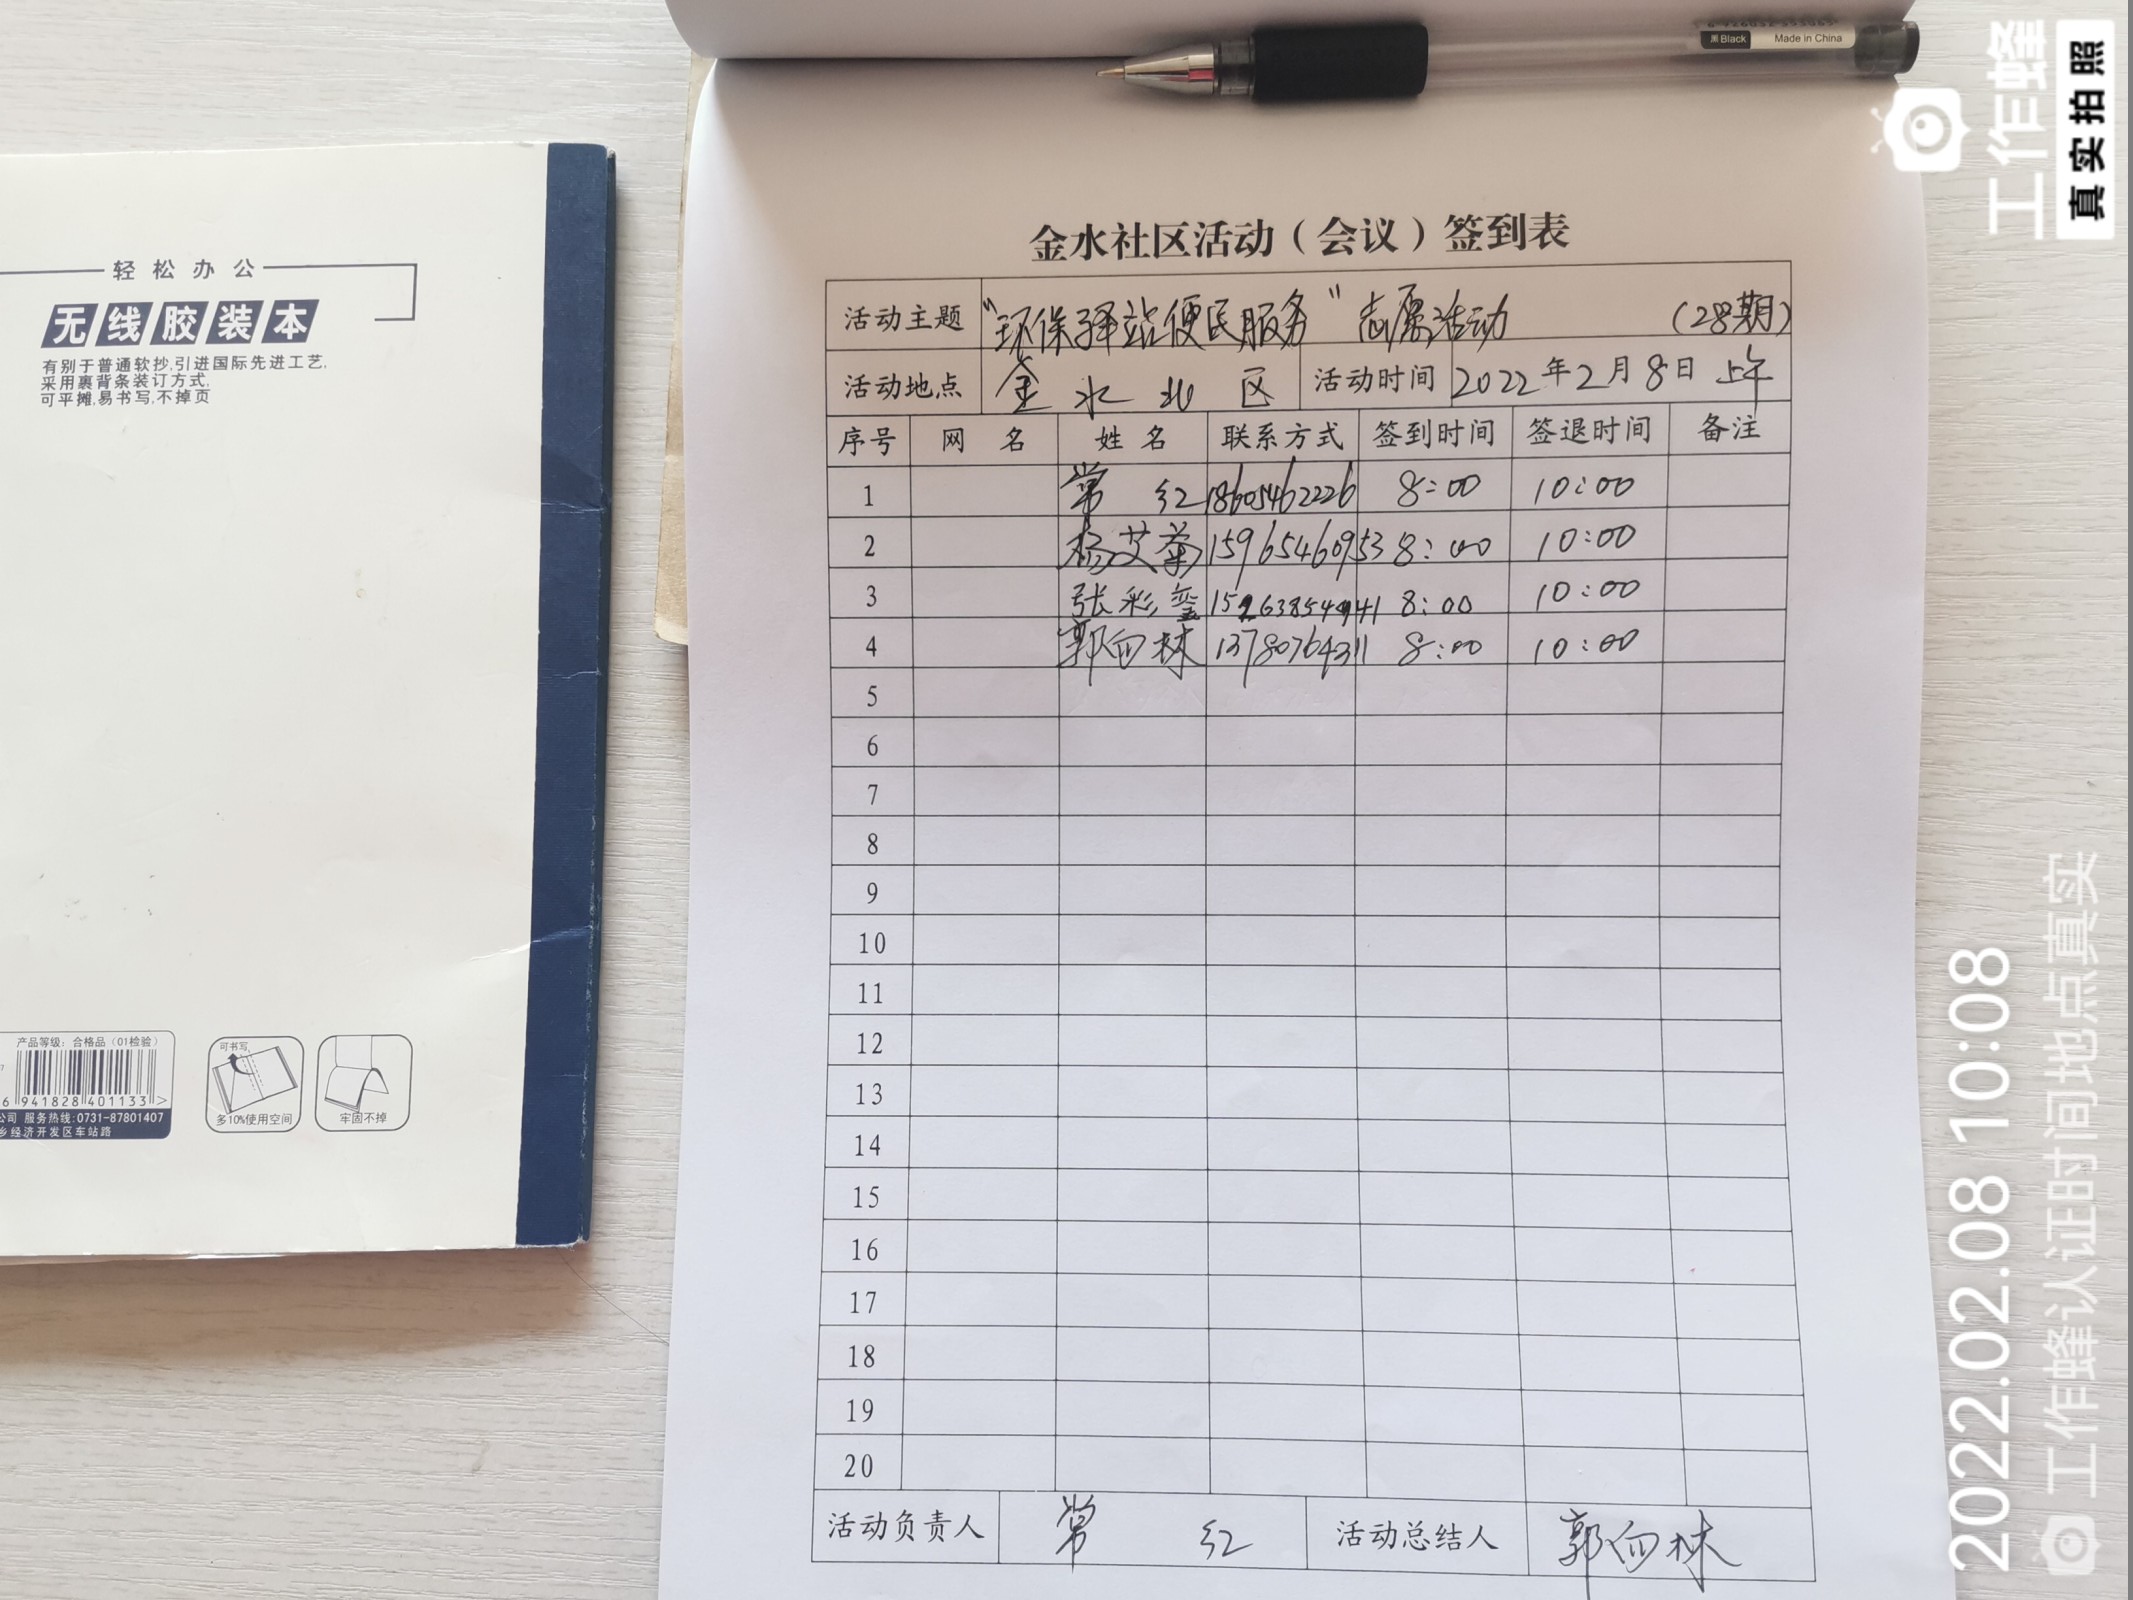 黑Black Made in China
工作蜂
真实拍照
轻松办公
无线胶装本
有别于普通软抄,引进国际先进工艺,
采用裹背条装订方式,
可平摊,易书写,不掉页
产品等级：合格品（01检验）
6 941828 401133 >
公司 服务热线:0731-87801407
乡经济开发区车站路
可书写
多10%使用空间
牢固不掉
金水社区活动（会议）签到表
活动主题 “环保驿站便民服务” 志愿活动 （28期）
活动地点 金水北区 活动时间 2022年2月8日 上午
序号 网 名 姓 名 联系方式 签到时间 签退时间 备注
1 常 红 18605462226 8:00 10:00
2 杨艾菊 15965460953 8:00 10:00
3 张彩 8:00 10:00
4 郭向林 13780764311 8:00 10:00
5
6
7
8
9
10
11
12
13
14
15
16
17
18
19
20
活动负责人 常 红 活动总结人 郭向林
2022.02.08 10:08
工作蜂认证时间地点真实